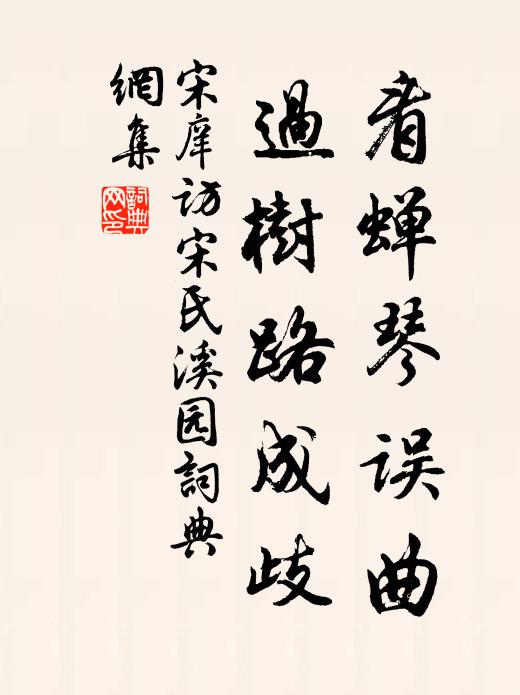 看蝉琴误曲
過樹路成歧
宋庠访宋氏溪园詞典
網集
詞典網印